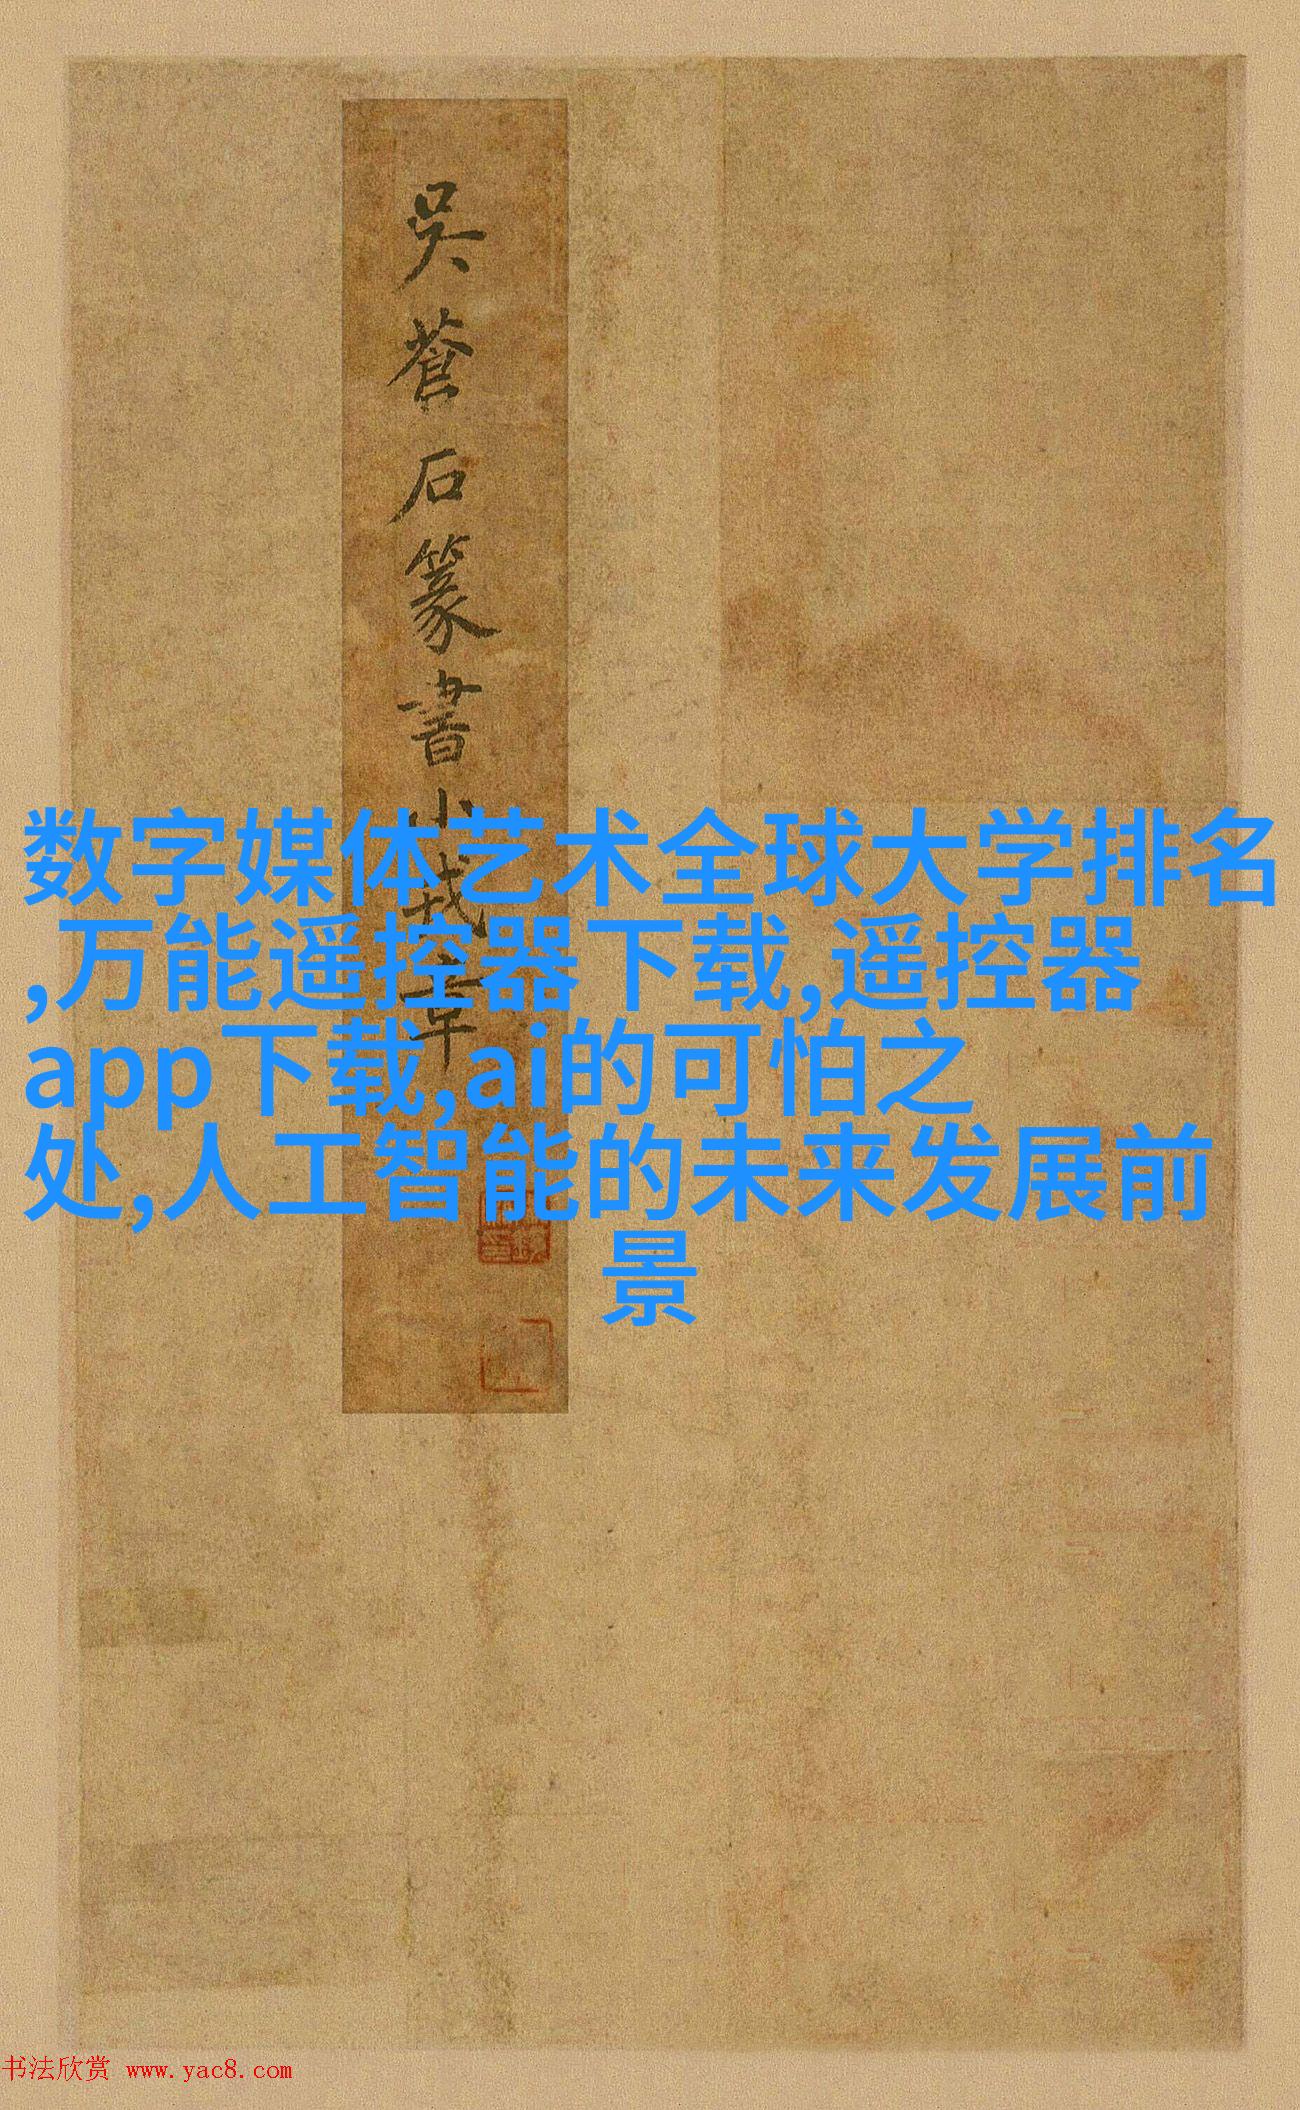 吳蒼石篆書小戎章
数字媒体艺术全球大学排名
,万能遥控器下载,遥控器
app下载,ai的可怕之
处,人工智能的未来发展前
景
书法欣赏 www.yac8.com